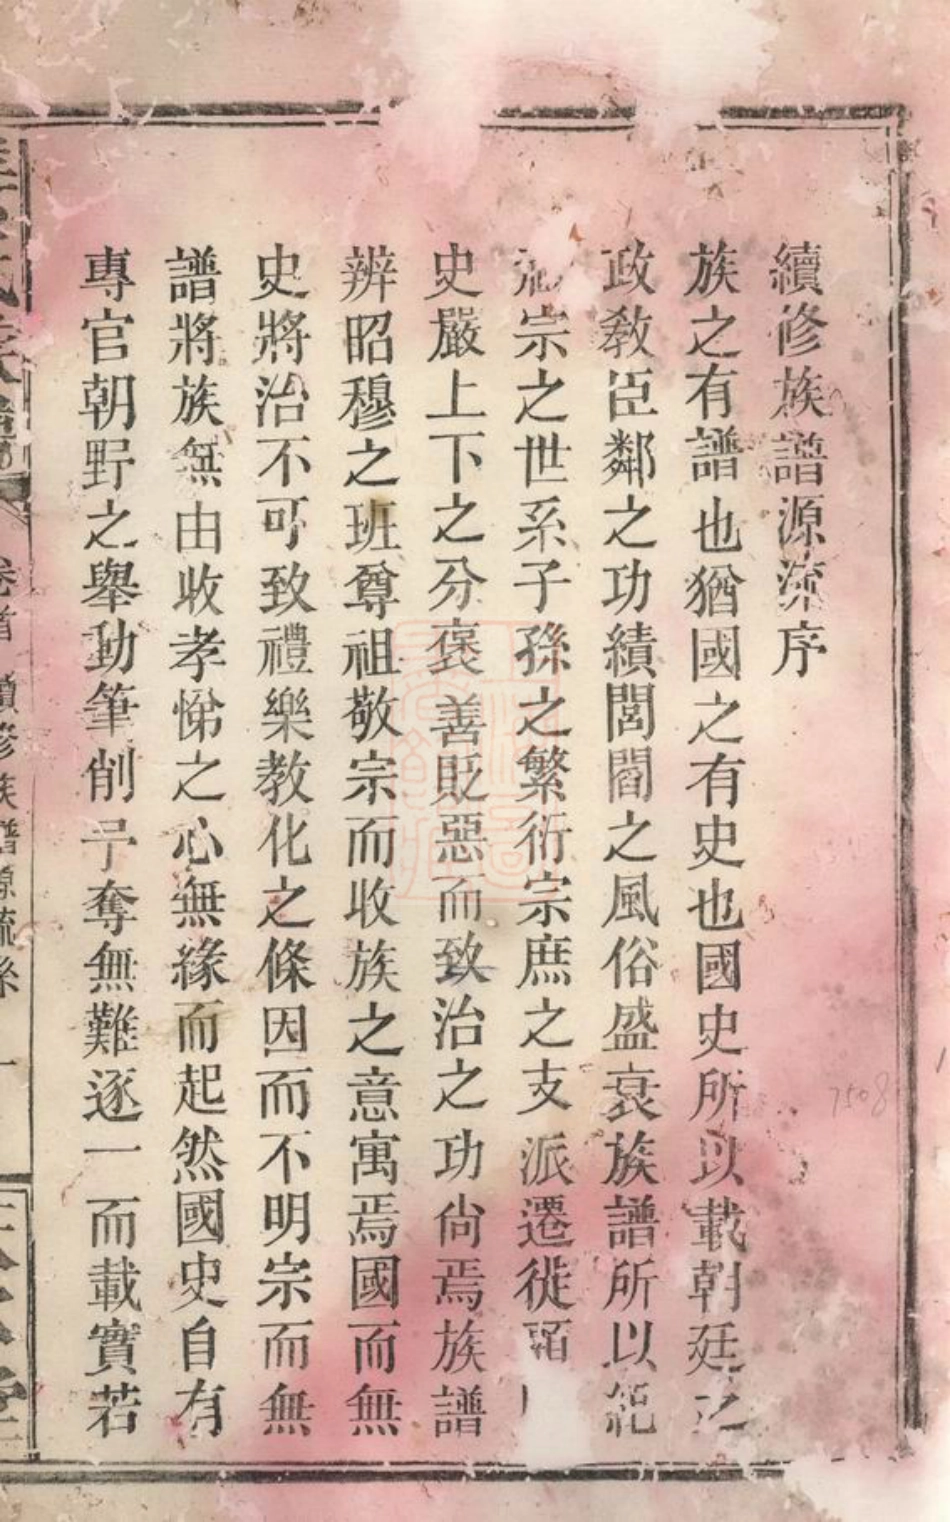 續修族譜源流序
族之有譜也猶國之有史也國史所以載朝廷之
政敎臣鄰之功績閭閻之風俗盛衰族譜所以紀
宗之世系子孫之繁衍宗庶之支派遷徙
史嚴上下之分褒善貶惡而致治之功尙焉族譜
辨昭穆之班尊祖敬宗而收族之意寓焉國而無
史將治不可致禮樂教化之條因而不明宗而無
譜將族無由收孝悌之心無緣而起然國史自有
專官朝野之舉動筆削予奪無難逐一而載實若
卷首 續修族譜源流 一